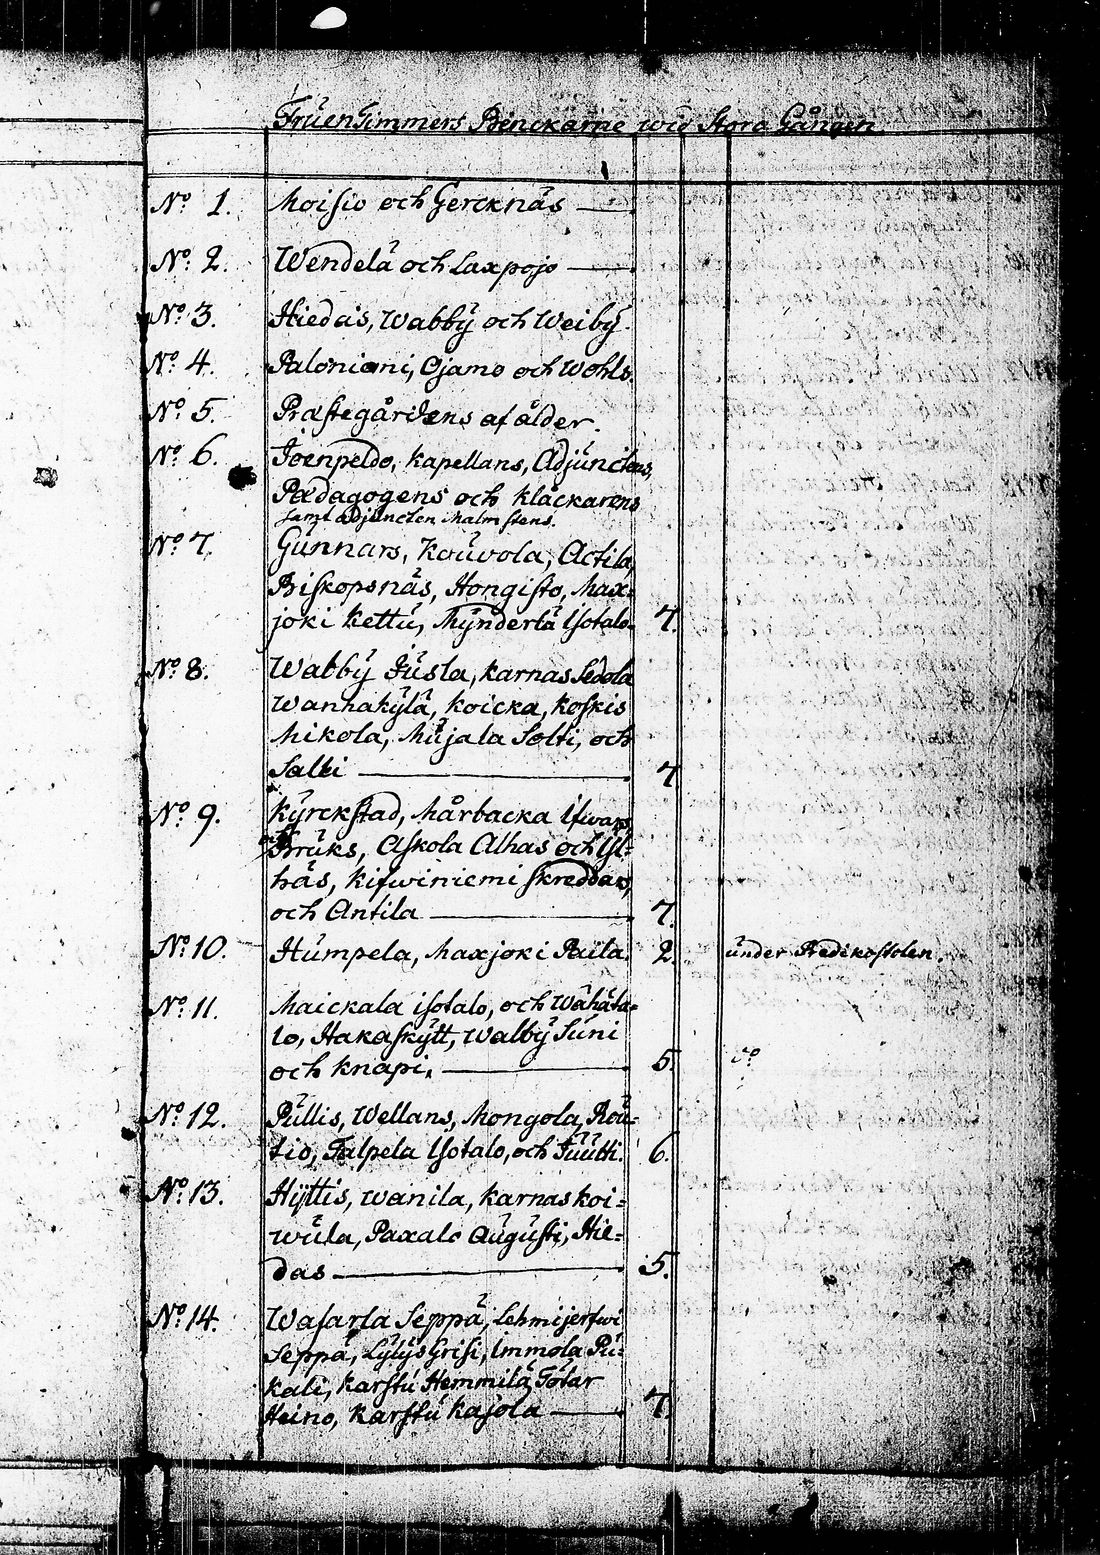 Fruentimmers Benckarne wid Stora Gången
No 1. Moisio och Gercknäs
No 2. Wendelä och Laxpojo
No 3. Hiedais, Wabby och Weiby
No 4. Paloniemi, Ojamo och Wohls.
No 5. Præstegårdens af ålder.
No 6. Joenpeldo, Kapellans, Adjunctens,
Pædagogens och Klåckarens
samt adjuncten Malmstens.
No 7. Gunnars, Kouvola, Actila,
Biskopsnäs, Hongisto, Max-
joki Kettu, Mynderlä Isotalo. 7.
No 8. Wabby Jusla, Karnas Sedola
Wannakylä, Koicka, Koskis
Mikola, Mujala Solti, och
Salki 7
No 9. Kyrckstad, Mårbacka Ifwars,
Bruks, Askola Alhas och Yl-
häs, Kifwiniemi Skreddas,
och Antila 7.
No 10. Humpela, Maxjoki Paila. 2. under Predikostolen.
No 11. Maickala isotalo, och Wähäta-
lo, Hakaskytt, Walby Suni
och Knapi. 5. do
No 12. Pullis, Wellans, Mongola, Rou-
tio, Talpela Isotalo, och Juutti. 6.
No 13. Hyttis, Wanila, Karnas Koi-
wula, Paxalo Augusti, Hie-
das 5.
No 14. Wasarla Seppä, Lehmijerfwi
Seppä, Lylys Grisi, Immola Pu-
kali, Karstu Hemmilä Tötar
Heino, Karstu Kajola 7.